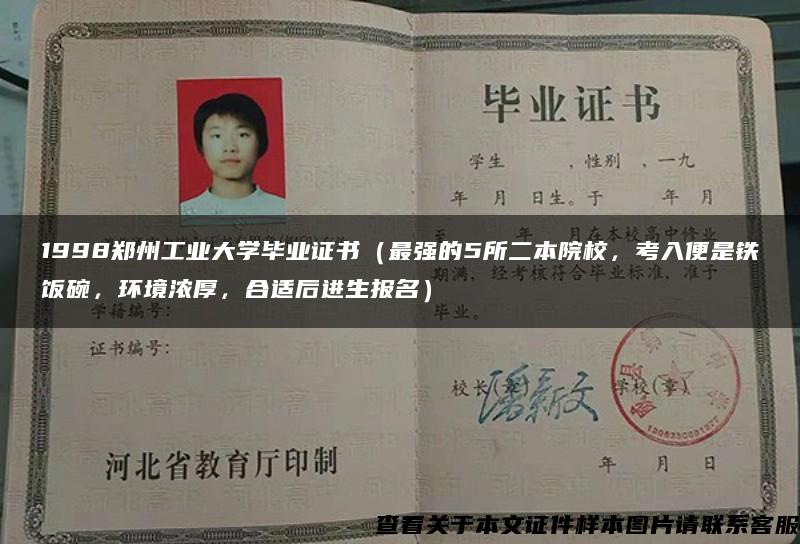 毕业证书
学生　　，性别　，一九
年　月　日生。于　　年　月
至　　年　　月在本校高中修业
期满，经考核符合毕业标准，准予
毕业。
1998郑州工业大学毕业证书（最强的5所二本院校，考入便是铁
饭碗，环境浓厚，合适后进生报名）
学籍编号：
证书编号：
校长(章)
潘新文
学校(章)
年　月　日
河北省教育厅印制
查看关于本文证件样本图片请联系客服